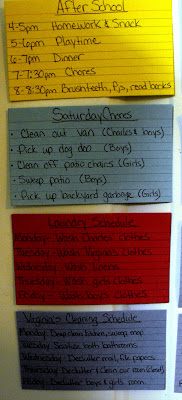 After School
4-5pm Homework & Snack
5-6pm Playtime
6-7pm Dinner
7-7:30pm Chores
8-8:30pm Brush teeth, Pjs, read books
Saturday Chores
• Clean out van (Charles & boys)
• Pick up dog doo (Boys)
• Clean off patio chairs (Girls)
• Sweep patio (Boys)
• Pick up backyard garbage (Girls)
Laundry Schedule
Monday: Wash Charles clothes
Tuesday: Wash Virginia's clothes
Wednesday: Wash linens
Thursday: Wash girls clothes
Friday: Wash boys clothes
Cleaning Schedule
Monday: Deep clean kitchen, sweep, mop
Tuesday: both bathrooms
Wednesday: Declutter mail, file papers
Thursday: Declutter & Clean our room (closet)
Friday: Declutter boys & girls room